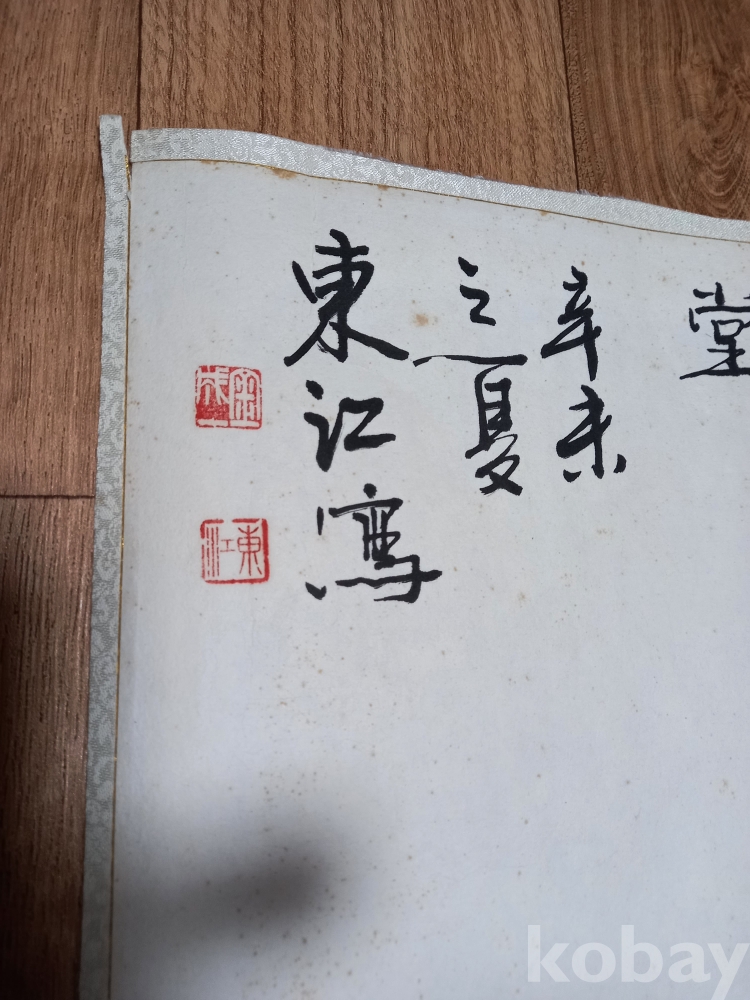 堂
辛未
之夏
東江寫
東江
kobay